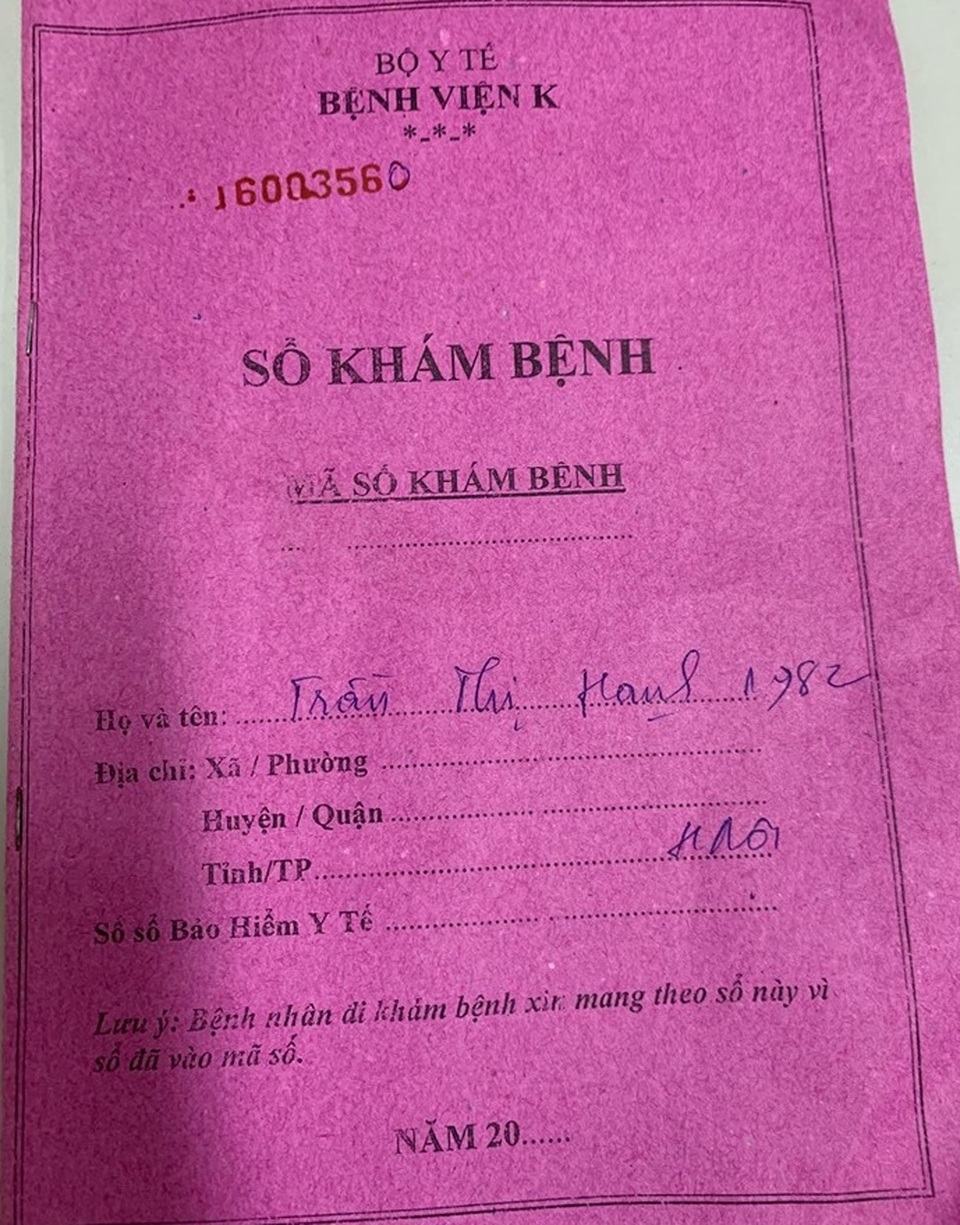 BỘ Y TẾ
BỆNH VIỆN K
*-*-*
16003560
SỔ KHÁM BỆNH
MÃ SỐ KHÁM BỆNH
Họ và tên: Trần Thị Hạnh 1982
Địa chỉ: Xã / Phường
Huyện / Quận
Tỉnh/TP HNội
Số sổ Bảo Hiểm Y Tế
Lưu ý: Bệnh nhân đi khám bệnh xin mang theo sổ này vì
sổ đã vào mã số.
NĂM 20......